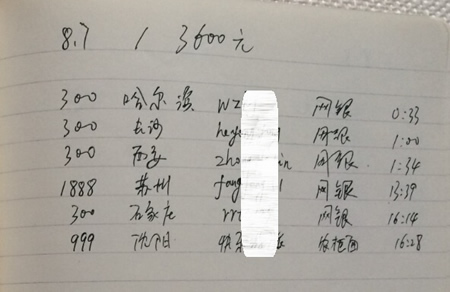 8.7 1 3600元
300 哈尔滨 wz 网银 0:33
300 长沙 网银 1:00
300 西安 zho in 网银 1:34
1888 苏州 fang 网银 13:39
300 石家庄 网银 16:14
999 沈阳 16:28